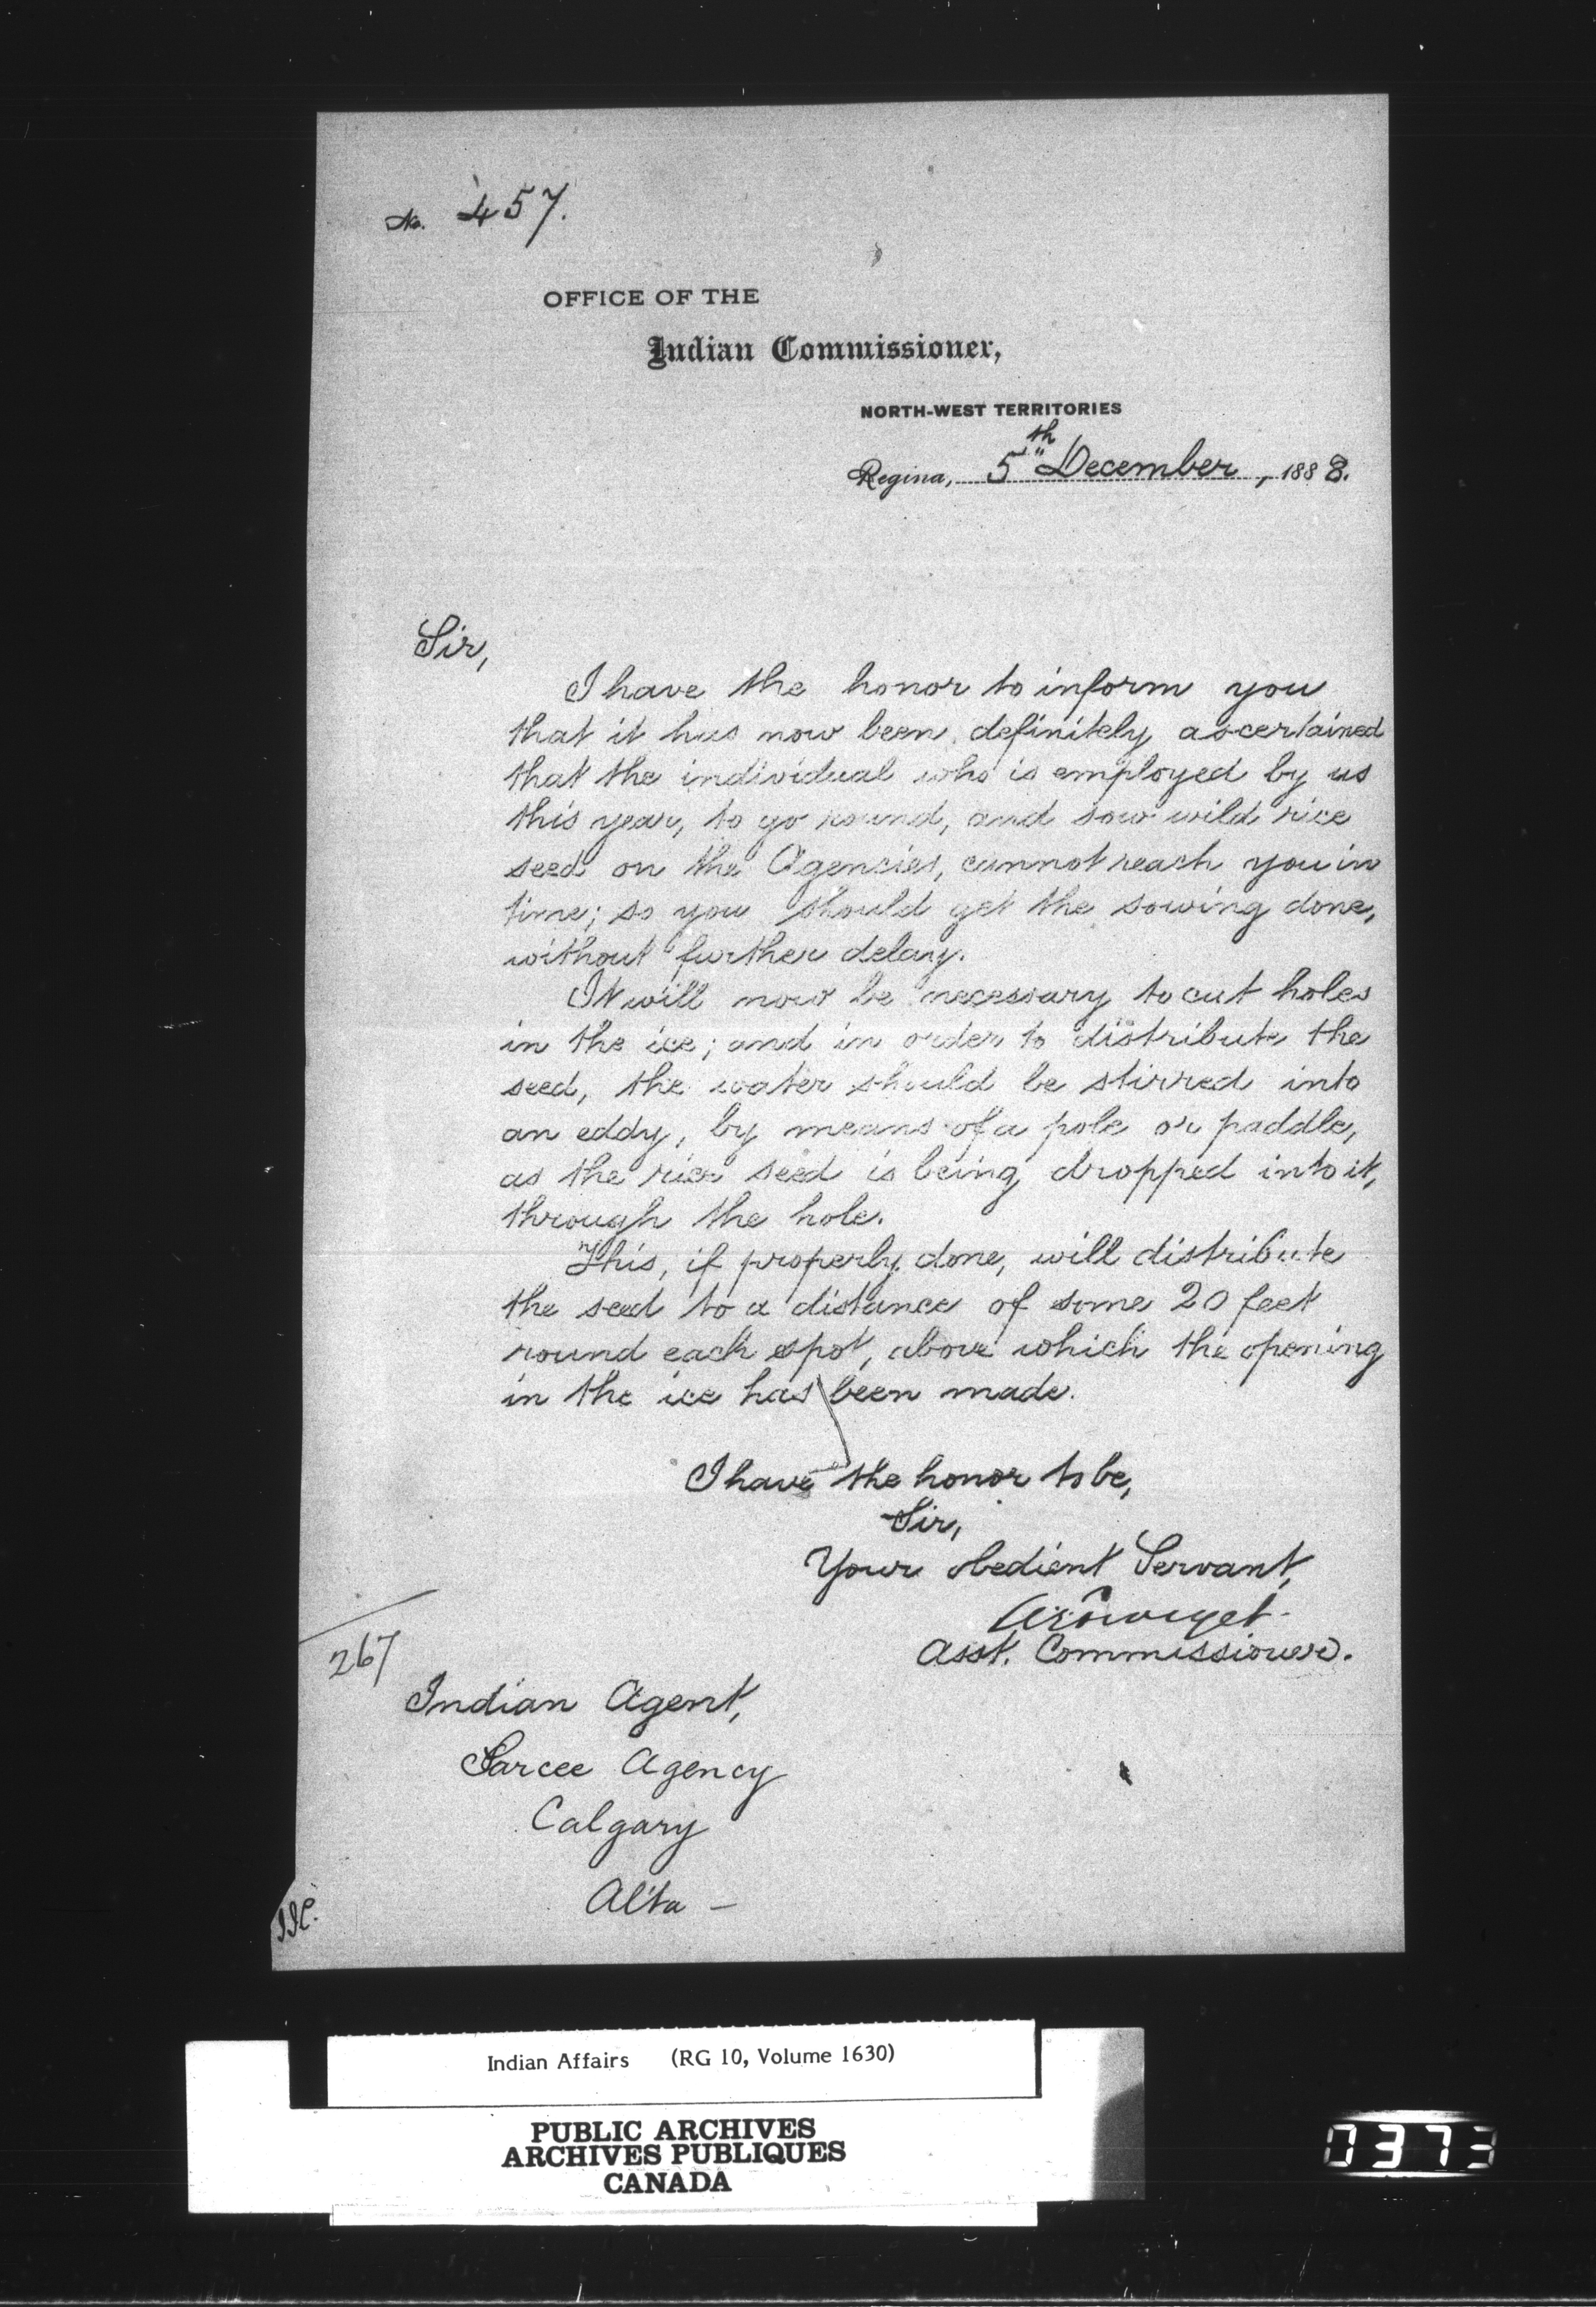 No. 457.
OFFICE OF THE
Indian Commissioner,
NORTH-WEST TERRITORIES
Regina, 5th December, 1888.
Sir,
I have the honor to inform you
that it has now been definitely ascertained
that the individual who is employed by us
this year, to go round, and sow wild rice
seed on the Agencies, cannot reach you in
time; so you should get the sowing done,
without further delay.
It will now be necessary to cut holes
in the ice; and in order to distribute the
seed, the water should be stirred into
an eddy, by means of a pole or paddle,
as the rice seed is being dropped into it,
through the hole.
This, if properly done, will distribute
the seed to a distance of some 20 feet
round each spot, above which the opening
in the ice has been made.
I have the honor to be,
Sir,
Your obedient Servant,
Asst. Commissioner.
267
Indian Agent,
Sarcee Agency
Calgary
Alta —
Indian Affairs (RG 10, Volume 1630)
PUBLIC ARCHIVES
ARCHIVES PUBLIQUES
CANADA
0373